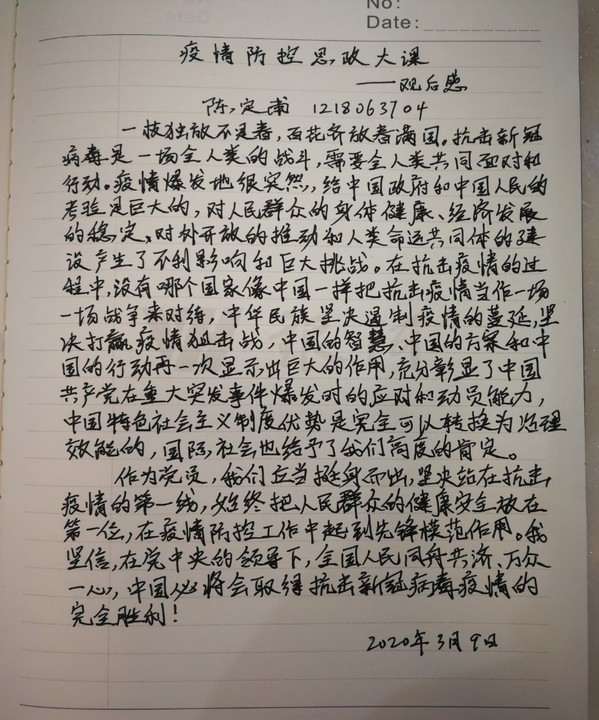 No:
Date:
疫情防控思政大课
——观后感
陈定甫 1218063704
一枝独放不是春,百花齐放春满园。抗击新冠
病毒是一场全人类的战斗,需要全人类共同面对和
行动。疫情爆发地很突然,给中国政府和中国人民的
考验是巨大的,对人民群众的身体健康、经济发展
的稳定、对外开放的推动和人类命运共同体的建
设产生了不利影响和巨大挑战。在抗击疫情的过
程中,没有哪个国家像中国一样把抗击疫情当作一场
一场战争来对待,中华民族坚决遏制疫情的蔓延,坚
决打赢疫情狙击战,中国的智慧、中国的方案和中
国的行动再一次显示出巨大的作用,充分彰显了中国
共产党在重大突发事件爆发时的应对和动员能力,
中国特色社会主义制度优势是完全可以转换为治理
效能的,国际社会也给予了我们高度的肯定。
作为党员,我们应当挺身而出,坚决站在抗击
疫情的第一线,始终把人民群众的健康安全放在
第一位,在疫情防控工作中起到先锋模范作用。我
坚信,在党中央的领导下,全国人民同舟共济、万众
一心,中国必将会取得抗击新冠病毒疫情的
完全胜利!
2020年3月9日